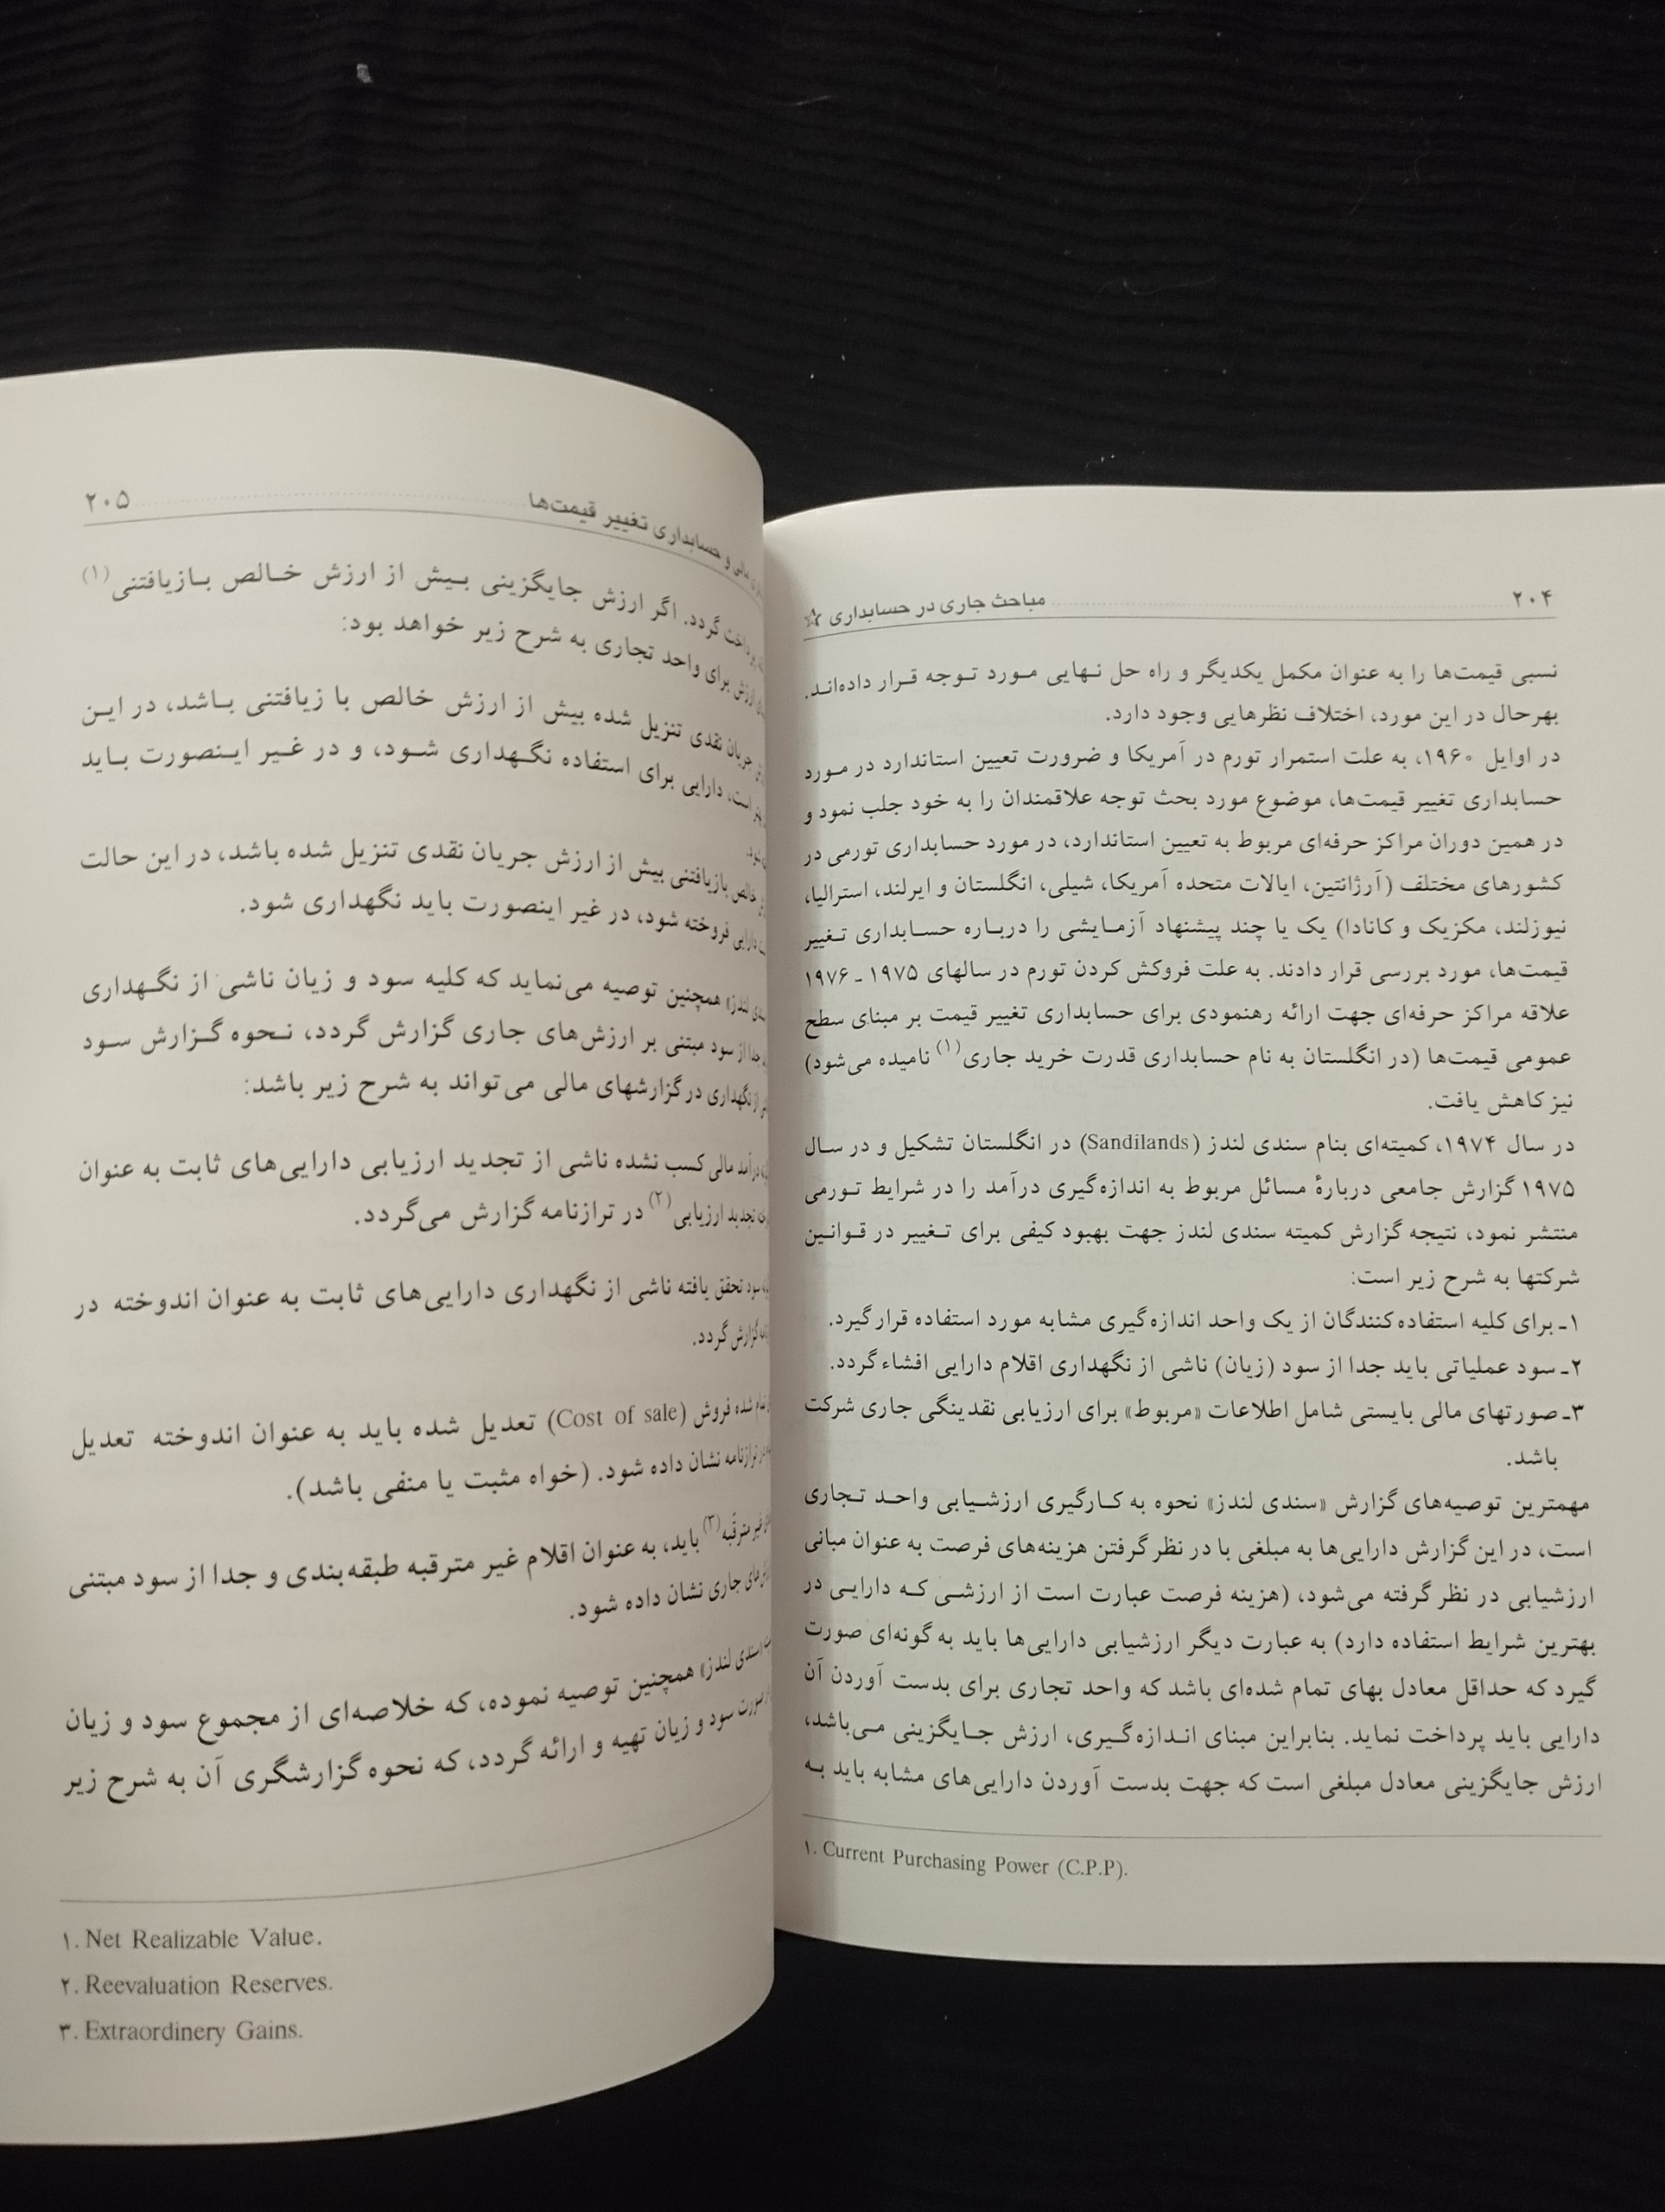 ۲۰۴ مباحث جاری در حسابداری ☆
نسبی قیمت‌ها را به عنوان مکمل یکدیگر و راه حل نهایی مورد توجه قرار داده‌اند.
بهرحال در این مورد، اختلاف نظرهایی وجود دارد.
در اوایل ۱۹۶۰، به علت استمرار تورم در آمریکا و ضرورت تعیین استاندارد در مورد
حسابداری تغییر قیمت‌ها، موضوع مورد بحث توجه علاقمندان را به خود جلب نمود و
در همین دوران مراکز حرفه‌ای مربوط به تعیین استاندارد، در مورد حسابداری تورمی در
کشورهای مختلف (آرژانتین، ایالات متحده آمریکا، شیلی، انگلستان و ایرلند، استرالیا،
نیوزلند، مکزیک و کانادا) یک یا چند پیشنهاد آزمایشی را درباره حسابداری تغییر
قیمت‌ها، مورد بررسی قرار دادند. به علت فروکش کردن تورم در سالهای ۱۹۷۵ ـ ۱۹۷۶
علاقه مراکز حرفه‌ای جهت ارائه رهنمودی برای حسابداری تغییر قیمت بر مبنای سطح
عمومی قیمت‌ها (در انگلستان به نام حسابداری قدرت خرید جاری(۱) نامیده می‌شود)
نیز کاهش یافت.
در سال ۱۹۷۴، کمیته‌ای بنام سندی لندز (Sandilands) در انگلستان تشکیل و در سال
۱۹۷۵ گزارش جامعی دربارهٔ مسائل مربوط به اندازه‌گیری درآمد را در شرایط تورمی
منتشر نمود، نتیجه گزارش کمیته سندی لندز جهت بهبود کیفی برای تغییر در قوانین
شرکتها به شرح زیر است:
۱ـ برای کلیه استفاده‌کنندگان از یک واحد اندازه‌گیری مشابه مورد استفاده قرار گیرد.
۲ـ سود عملیاتی باید جدا از سود (زیان) ناشی از نگهداری اقلام دارایی افشاء گردد.
۳ـ صورتهای مالی بایستی شامل اطلاعات «مربوط» برای ارزیابی نقدینگی جاری شرکت
باشد.
مهمترین توصیه‌های گزارش «سندی لندز» نحوه به کارگیری ارزشیابی واحد تجاری
است، در این گزارش دارایی‌ها به مبلغی با در نظر گرفتن هزینه‌های فرصت به عنوان مبانی
ارزشیابی در نظر گرفته می‌شود، (هزینه فرصت عبارت است از ارزشی که دارایی در
بهترین شرایط استفاده دارد) به عبارت دیگر ارزشیابی دارایی‌ها باید به گونه‌ای صورت
گیرد که حداقل معادل بهای تمام شده‌ای باشد که واحد تجاری برای بدست آوردن آن
دارایی باید پرداخت نماید. بنابراین مبنای اندازه‌گیری، ارزش جایگزینی می‌باشد،
ارزش جایگزینی معادل مبلغی است که جهت بدست آوردن دارایی‌های مشابه باید به
۱. Current Purchasing Power (C.P.P).
مالی و حسابداری تغییر قیمت‌ها ۲۰۵
گردد. اگر ارزش جایگزینی بیش از ارزش خالص بازیافتنی(۱)
ارزش برای واحد تجاری به شرح زیر خواهد بود:
جریان نقدی تنزیل شده بیش از ارزش خالص با زیافتنی باشد، در این
است، دارایی برای استفاده نگهداری شود، و در غیر اینصورت باید
خالص بازیافتنی بیش از ارزش جریان نقدی تنزیل شده باشد، در این حالت
دارایی فروخته شود، در غیر اینصورت باید نگهداری شود.
لندز» همچنین توصیه می‌نماید که کلیه سود و زیان ناشی از نگهداری
جدا از سود مبتنی بر ارزش‌های جاری گزارش گردد، نحوه گزارش سود
از نگهداری در گزارشهای مالی می‌تواند به شرح زیر باشد:
درآمد مالی کسب نشده ناشی از تجدید ارزیابی دارایی‌های ثابت به عنوان
تجدید ارزیابی(۲) در ترازنامه گزارش می‌گردد.
سود تحقق یافته ناشی از نگهداری دارایی‌های ثابت به عنوان اندوخته در
گزارش گردد.
تمام شده فروش (Cost of sale) تعدیل شده باید به عنوان اندوخته تعدیل
در ترازنامه نشان داده شود. (خواه مثبت یا منفی باشد).
غیر مترقبه(۳) باید، به عنوان اقلام غیر مترقبه طبقه‌بندی و جدا از سود مبتنی
جاری نشان داده شود.
سندی لندز» همچنین توصیه نموده، که خلاصه‌ای از مجموع سود و زیان
صورت سود و زیان تهیه و ارائه گردد، که نحوه گزارشگری آن به شرح زیر
۱. Net Realizable Value.
۲. Reevaluation Reserves.
۳. Extraordinery Gains.